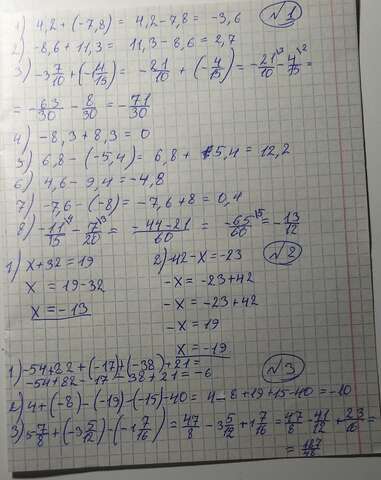 №1
1) 4,2 + (-7,8) = 4,2 - 7,8 = -3,6
2) -8,6 + 11,3 = 11,3 - 8,6 = 2,7
3) -3 7/10 + (- 4/15) = - 21/10 + (- 4/15) = - 21/10 \3 - 4/15 \2 =
= - 63/30 - 8/30 = - 71/30
4) -8,3 + 8,3 = 0
5) 6,8 - (-5,4) = 6,8 + 5,4 = 12,2
6) 4,6 - 9,4 = -4,8
7) -7,6 - (-8) = -7,6 + 8 = 0,4
8) - 11/15 \4 - 7/20 \3 = - 44-21/60 = - 65/60 \5 = - 13/12
№2
1) x + 32 = 19
x = 19 - 32
x = -13
2) -42 - x = -23
-x = -23 + 42
-x = -23 + 42
-x = 19
x = -19
№3
1) -54 + 82 + (-17) + (-38) + 21 =
-54 + 82 - 17 - 38 + 21 = -6
2) 4 + (-8) - (-19) - (-15) - 40 = 4 - 8 + 19 + 15 - 40 = -10
3) 5 7/8 + (-3 5/12) - (-1 7/16) = 47/8 - 3 5/12 + 1 7/16 = 47/8 - 41/12 + 23/16 =
= 187/48